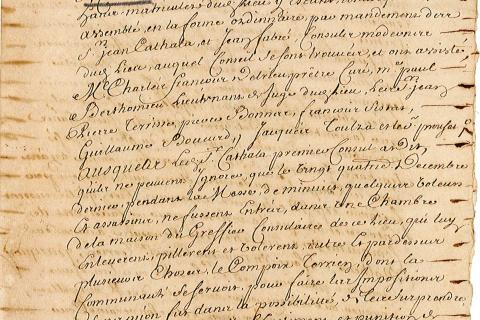 assemblé, en la forme ordinaire, par mandement de
Sr. Jean Cathala, et Jean fabre, Consuls moderne
dud. Lieu, auquel Conseil se sont trouvés, et ont assisté
Me. Charles françois prêtre Curé, Me. paul
Berthomieu Lieutenant de Juge dud. Lieu, Jean
Pierre Terrisse, Bonnet, françois
Guillaume Toulza et le Sr.
Ausquels led. Sr. Cathala premier Consul a dit
quils ne peuvent ignorer, que le vingt quatre Decembre
dernier, pendant la Messe de minuit, quelques voleurs
et assassins, ne fussent Entrés, dans une Chambre
de la maison du Greffier Consulaire de ce Lieu, qui luy
Enleverent, pillerent et volerent, outre et pardessus
plusieurs Choses, le Compoix Terrien, dont la
Communauté se servoit, pour faire les Impositions
dans la possibilité, de surprendre
punition de